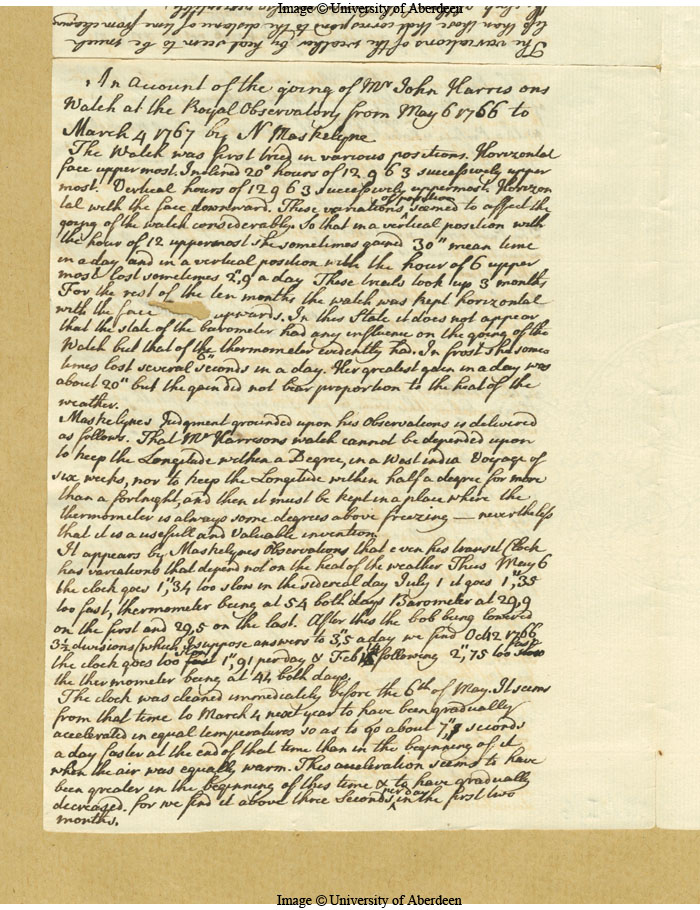 Image © University of Aberdeen
The variations of the weather by heat seem to be much
less than those that correspond to the distance of time from cleaning
An account of the going of Mr John Harrisons
Watch at the Royal Observatory from May 6 1766 to
March 4 1767 by N Maskelyne
The Watch was first tried in various positions. Horizontal
face uppermost. Inclined 20° hours of 12 9 6 3 successively upper
most. Vertical hours of 12 9 6 3 successively uppermost. Horizon
tal with the face downward. These variations of position seemed to affect the
going of the watch considerably. So that in a vertical position with
the hour of 12 uppermost she sometimes gained 30" mean time
in a day and in a vertical position with the hour of 6 upper
most lost sometimes 2",9 a day These trials took up 3 months
For the rest of the ten months the watch was kept horizontal
with the face upwards. In this State it does not appear
that the state of the barometer had any influence on the going of the
Watch but that of the thermometer evidently had. In frost she some
times lost several seconds in a day. Her greatest gain in a day was
about 20" but the gain did not bear proportion to the heat of the
weather.
Maskelynes Judgment grounded upon his Observations is delivered
as follows. That Mr Harrisons watch cannot be depended upon
to keep the Longitude within a Degree, in a West india Voyage of
six weeks, nor to keep the Longitude within half a degree for more
than a fortnight, and then it must be kept in a place where the
thermometer is always some degrees above freezing — neverthelss
that it is a usefull and valuable invention
It appears by Maskelynes Observations that even his transit Clock
has variations that depend not on the heat of the weather Thus May 6
the clock goes 1",34 too slow in the sidereal day July 1 it goes 1",35
too fast, thermometer being at 54 both days Barometer at 29,9
on the first and 29,5 on the last. After this the bob being lowered
3½ divisions (which I suppose answers to 3",5 a day we find Oct 12 1766
the clock goes too 1",91 per day & Feb following 2",75 too fast
the thermometer being at 44 both days.
The clock was cleaned immediately before the 6th of May. It seems
from that time to March 4 next year to have been gradually
accelerated in equal temperatures so as to go about 7", seconds
a day faster at the end of that time than in the beginning of it
when the air was equally warm. This acceleration seems to have
been greater in the beginning of this time & to have gradually
decreased. for we find it above three Seconds per day in the first two
months.
Image © University of Aberdeen